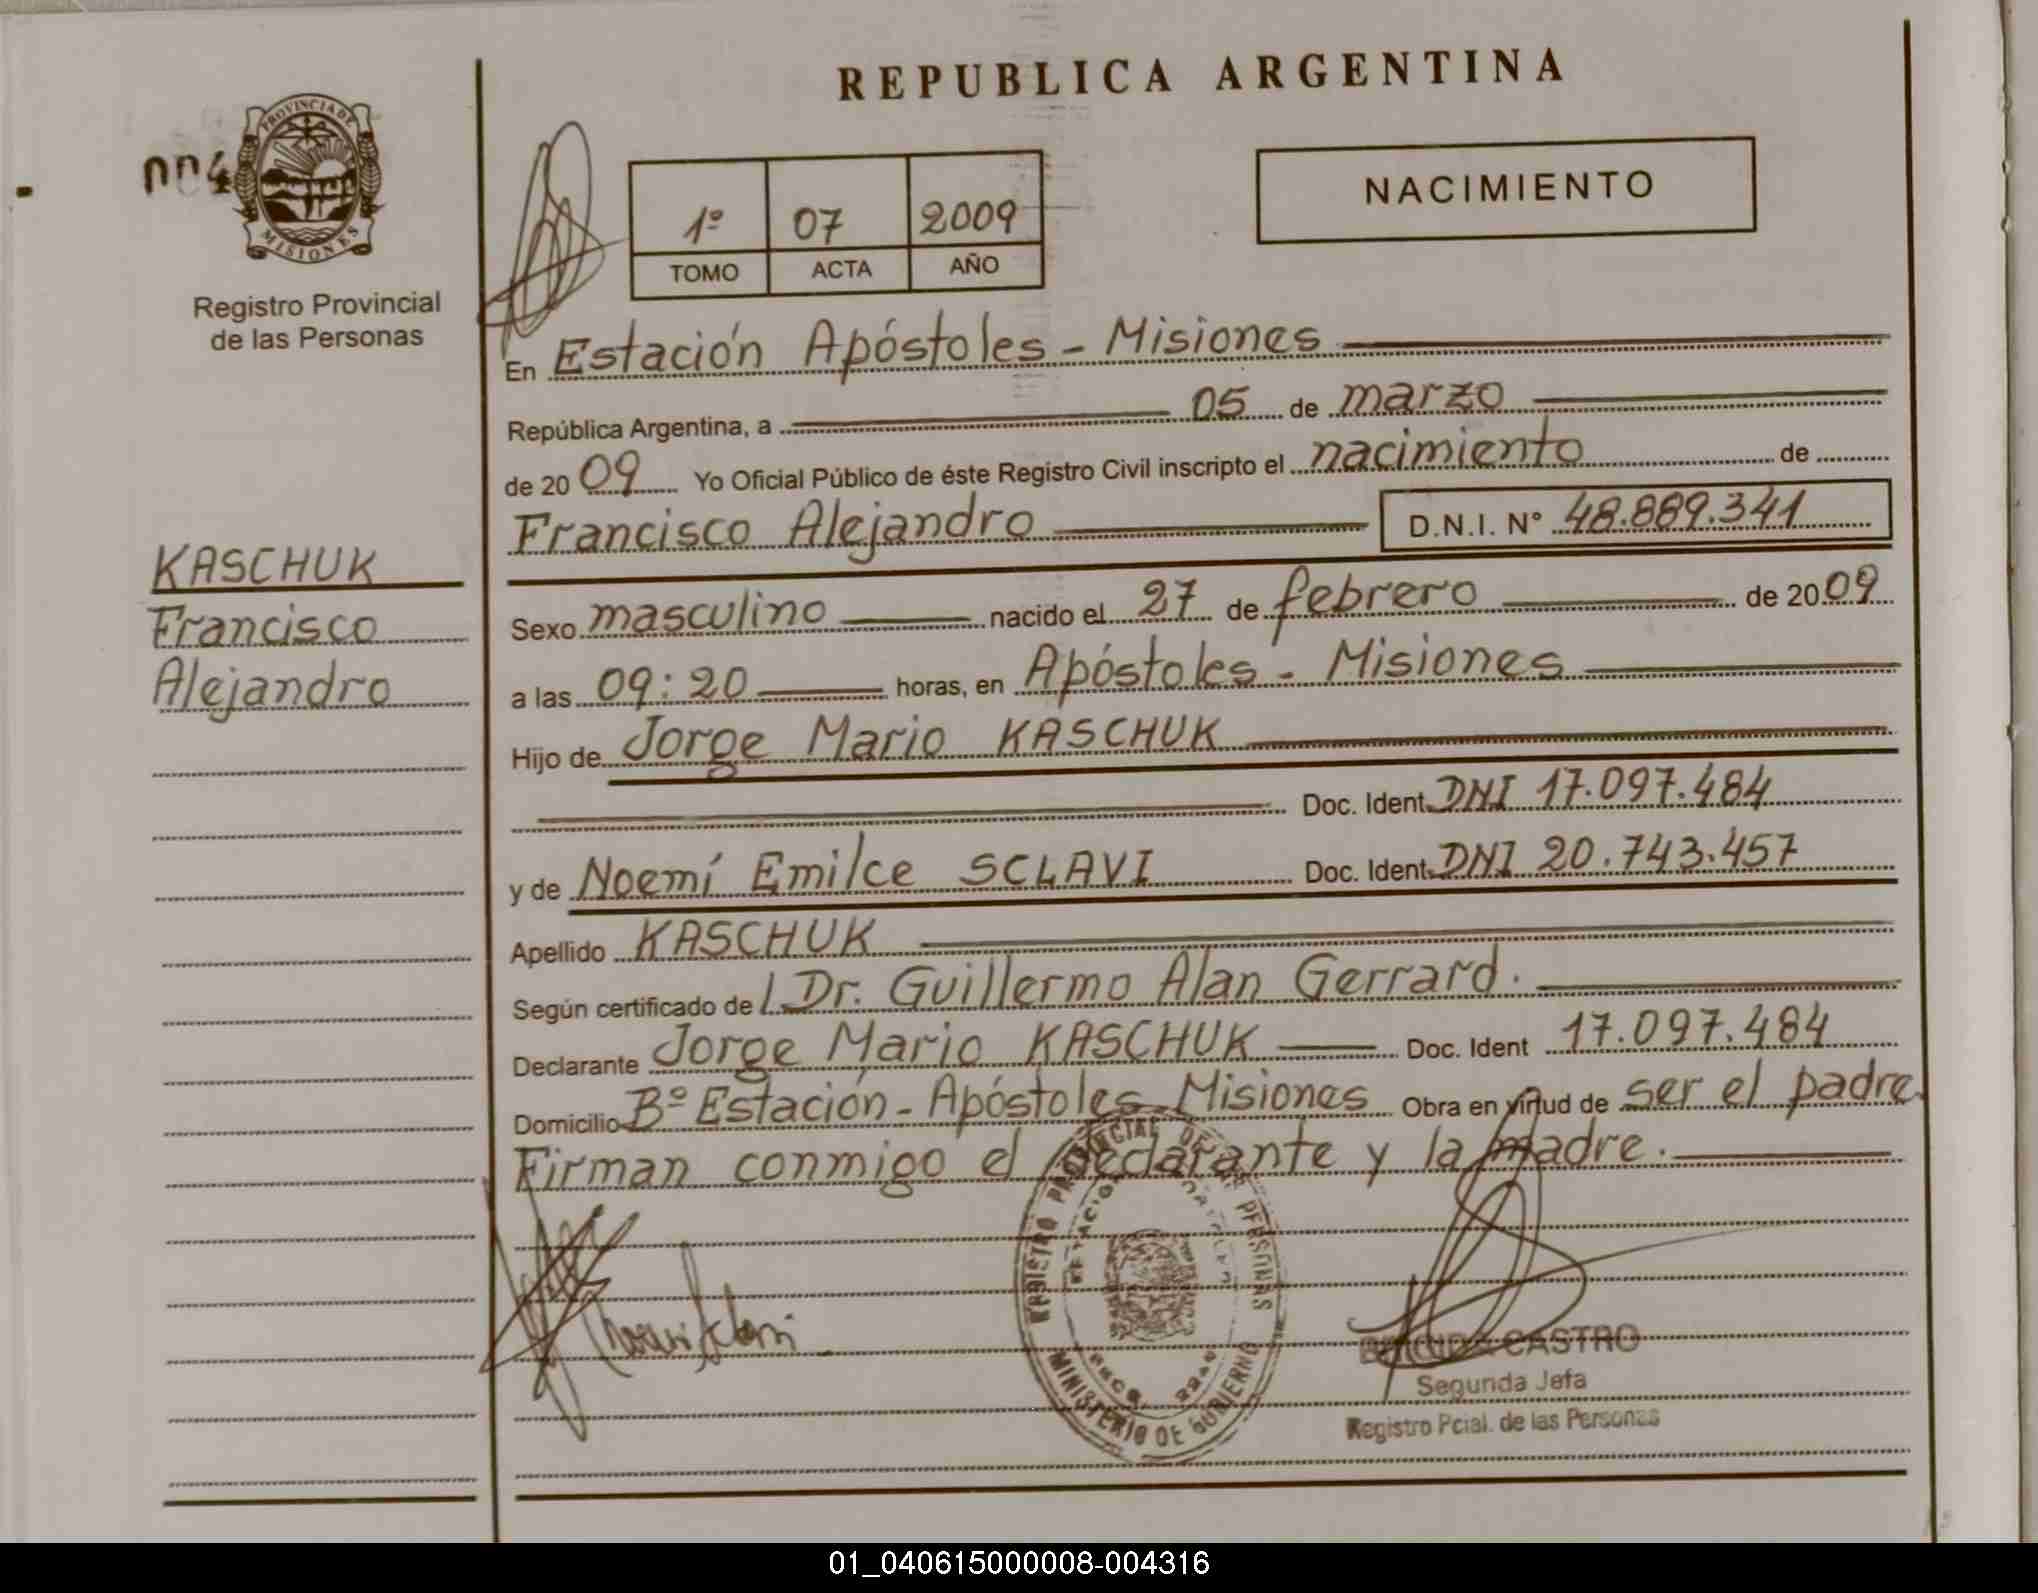 REPUBLICA ARGENTINA
004
PROVINCIA DE
MISIONES
Registro Provincial
de las Personas
1º 07 2009
TOMO ACTA AÑO
NACIMIENTO
En Estación Apóstoles - Misiones
República Argentina, a 05 de marzo
de 2009 Yo Oficial Público de éste Registro Civil inscripto el nacimiento de
Francisco Alejandro D.N.I. Nº 48.889.341
KASCHUK
Francisco
Alejandro
Sexo masculino nacido el 27 de febrero de 2009
a las 09:20 horas, en Apóstoles - Misiones
Hijo de Jorge Mario KASCHUK
Doc. Ident. DNI 17.097.484
y de Noemí Emilce SCLAVI Doc. Ident. DNI 20.743.457
Apellido KASCHUK
Según certificado de l Dr. Guillermo Alan Gerrard.
Declarante Jorge Mario KASCHUK Doc. Ident 17.097.484
Domicilio Bº Estación - Apóstoles - Misiones Obra en virtud de ser el padre.
Firman conmigo el declarante y la madre.
REGISTRO PROVINCIAL DE LAS PERSONAS
MINISTERIO DE GOBIERNO
CASTRO
Segunda Jefa
Registro Pcial. de las Personas
01_040615000008-004316